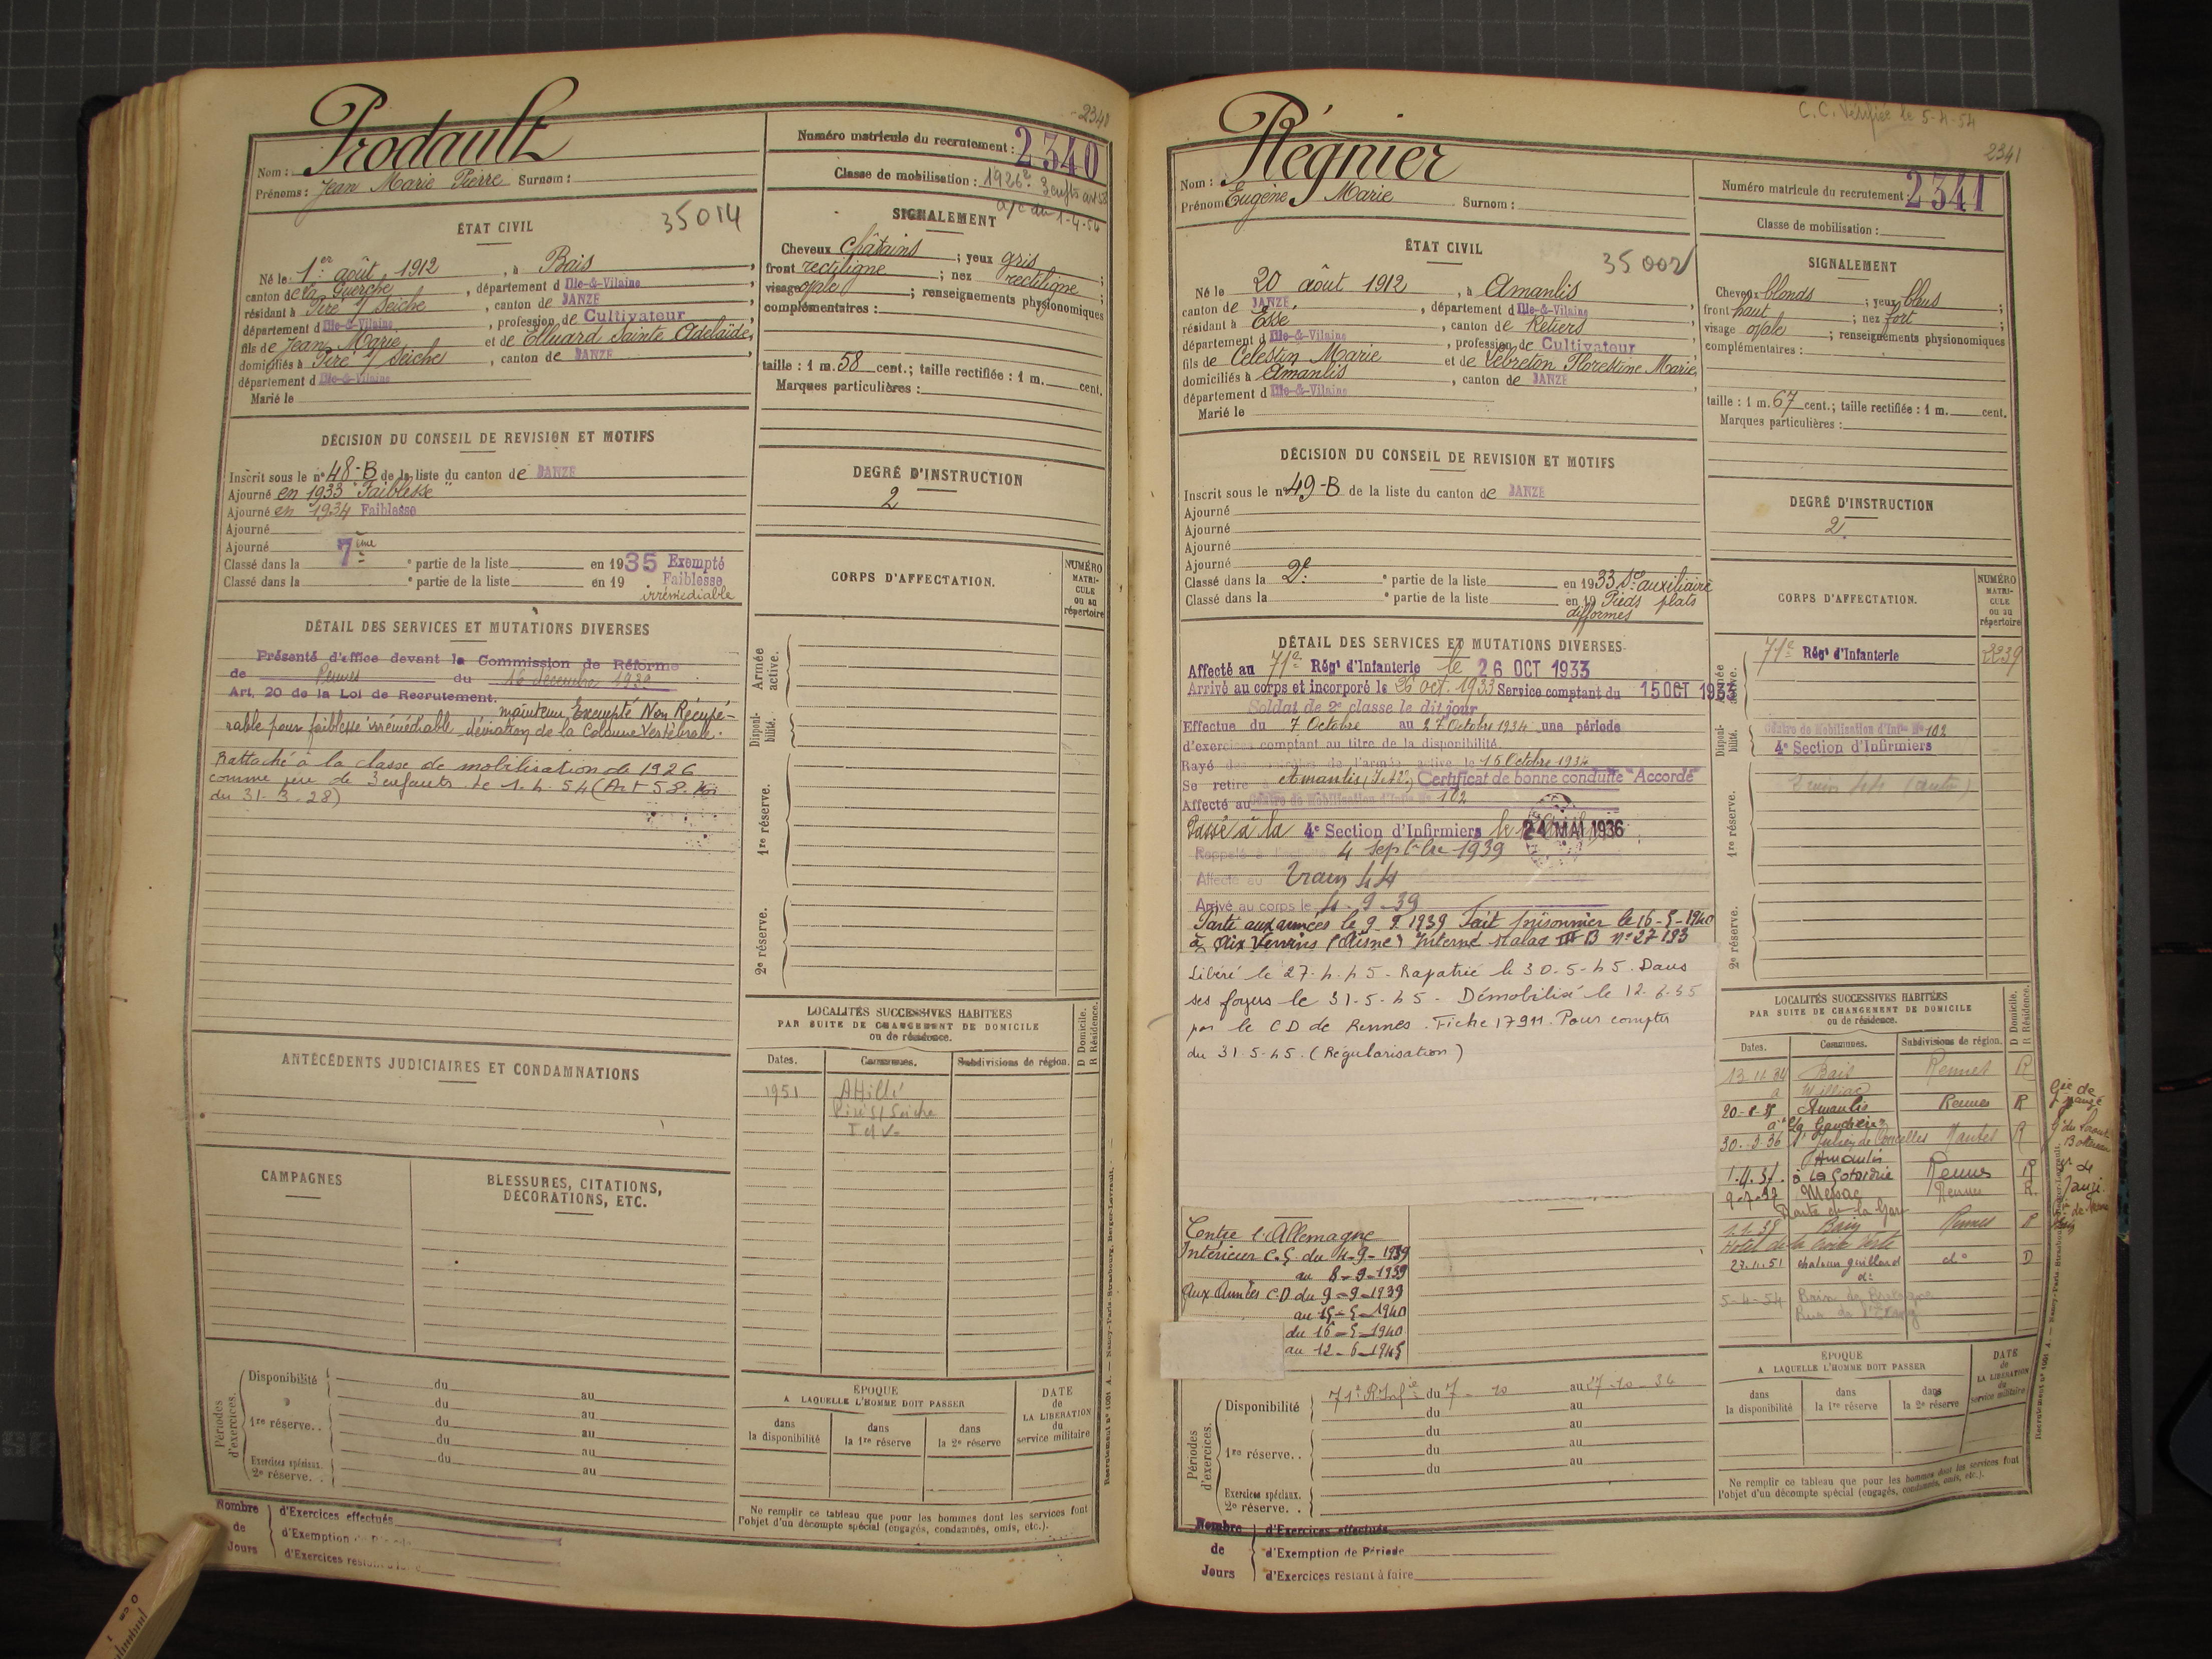 2340
Prodault
Nom :
Prénoms : Jean Marie Pierre Surnom :
Numéro matricule du recrutement : 2340
Classe de mobilisation : 1926
ÉTAT CIVIL
35014
Né le 1er août 1912, à Bais,
canton de la Guerche, département d Ille-&-Vilaine
résidant à Piré s/ Seiche, canton de JANZÉ
département d Ille-&-Vilaine, profession de Cultivateur
fils de Jean Marie et de Elluard Sainte Adelaïde,
domiciliés à Piré s/ Seiche, canton de JANZÉ
département d Ille-&-Vilaine
Marié le
SIGNALEMENT
Cheveux châtains ; yeux gris ;
front rectiligne ; nez rectiligne ;
visage ovale ; renseignements physionomiques
complémentaires :
taille : 1 m. 58 cent.; taille rectifiée : 1 m. cent.
Marques particulières :
DÉCISION DU CONSEIL DE REVISION ET MOTIFS
Inscrit sous le n° 48-B de la liste du canton de JANZÉ
Ajourné en 1933 "Faiblesse"
Ajourné en 1934 Faiblesse
Ajourné
Ajourné
Classé dans la 7ème e partie de la liste en 1935 Exempté
Classé dans la e partie de la liste en 19 Faiblesse
irrémédiable
DEGRÉ D'INSTRUCTION
2
DÉTAIL DES SERVICES ET MUTATIONS DIVERSES
Présenté d'office devant la Commission de Réforme
de Rennes du 16 décembre 1939
Art. 20 de la Loi de Recrutement.
maintenu Exempté Non Récupé-
rable pour faiblesse irrémédiable déviation de la Colonne Vertébrale.
Rattaché à la classe de mobilisation de 1926
comme père de 3 enfants le 1.4.54 (Art 58. Loi
du 31-3-28)
CORPS D'AFFECTATION.
NUMÉRO MATRI-CULE ou au répertoire
Armée active.
Disponi-bilité.
1re réserve.
2e réserve.
ANTÉCÉDENTS JUDICIAIRES ET CONDAMNATIONS
LOCALITÉS SUCCESSIVES HABITÉES
PAR SUITE DE CHANGEMENT DE DOMICILE
ou de résidence.
D Domicile.
R Résidence.
Dates. Communes. Subdivisions de région.
1951
Piré s/ Seiche
I et V
CAMPAGNES
BLESSURES, CITATIONS,
DÉCORATIONS, ETC.
Périodes d'exercices.
Disponibilité du au
du au
1re réserve. . du au
du au
Exercices spéciaux. du au
2e réserve. .
ÉPOQUE
A LAQUELLE L'HOMME DOIT PASSER
dans la disponibilité
dans la 1re réserve
dans la 2e réserve
DATE de LA LIBÉRATION du service militaire
Ne remplir ce tableau que pour les hommes dont les services font
l'objet d'un décompte spécial (engagés, condamnés, omis, etc.).
Nombre de Jours
d'Exercices effectués
d'Exemption de Période
d'Exercices restant à faire
C.C. Vérifiée le 5-4-54
2341
Régnier
Nom :
Prénom Eugène Marie Surnom :
Numéro matricule du recrutement : 2341
Classe de mobilisation :
ÉTAT CIVIL
35002
Né le 20 août 1912, à Amanlis
canton de JANZÉ, département d Ille-&-Vilaine
résidant à Essé, canton de Retiers
département d Ille-&-Vilaine, profession de Cultivateur
fils de Célestin Marie et de Lebreton Florestine Marie,
domiciliés à Amanlis, canton de JANZÉ
département d Ille-&-Vilaine
Marié le
SIGNALEMENT
Cheveux blonds ; yeux bleus ;
front haut ; nez fort ;
visage ovale ; renseignements physionomiques
complémentaires :
taille : 1 m. 67 cent.; taille rectifiée : 1 m. cent.
Marques particulières :
DÉCISION DU CONSEIL DE REVISION ET MOTIFS
Inscrit sous le n° 49-B de la liste du canton de JANZÉ
Ajourné
Ajourné
Ajourné
Ajourné
Classé dans la 2e e partie de la liste en 1933 Sce auxiliaire
Classé dans la e partie de la liste en 19 Pieds plats
difformes
DEGRÉ D'INSTRUCTION
2
DÉTAIL DES SERVICES ET MUTATIONS DIVERSES
Affecté au 71e Régt d'Infanterie le 26 OCT 1933
Arrivé au corps et incorporé le 26 oct. 1933 Service comptant du 15 OCT 1933
Soldat de 2e classe le dit jour
Effectue du 7 Octobre au 27 Octobre 1934 une période
d'exercices comptant au titre de la disponibilité.
Rayé des contrôles de l'armée active le 15 Octobre 1934
Se retire Amanlis (I et V) Certificat de bonne conduite "Accordé"
Affecté au Centre de Mobilisation d'Infie N° 102
Passé à la 4e Section d'Infirmiers le 24 MAI 1936
Rappelé à l'activité 4 septbre 1939
Affecté au Train 44
Arrivé au corps le 4-9-39
Parti aux armées le 9.9.1939 Fait prisonnier le 16-5-1940
à Aix Vervins (Aisne) Interné stalag III B n° 27193
Libéré le 27-4-45 - Rapatrié le 30-5-45. Dans
ses foyers le 31-5-45 - Démobilisé le 12-6-45
par le CD de Rennes. Fiche 17911. Pour compter
du 31-5-45. (Régularisation)
CORPS D'AFFECTATION.
NUMÉRO MATRI-CULE ou au répertoire
Armée active.
71e Régt d'Infanterie 2239
Disponi-bilité.
Centre de Mobilisation d'Infie N° 102
4e Section d'Infirmiers
1re réserve.
Train 44 (auto)
2e réserve.
LOCALITÉS SUCCESSIVES HABITÉES
PAR SUITE DE CHANGEMENT DE DOMICILE
ou de résidence.
D Domicile.
R Résidence.
Dates. Communes. Subdivisions de région.
13.11.34 Bais Rennes R
Amanlis Rennes R
30-3-36 St Julien de Concelles Nantes R
Amanlis
Rennes R
Messac Rennes R.
Bain Rennes
Hotel de la Croix Verte
27.11.51 d° D
5-4-54 Bain de Bretagne
Rue de l'Etang
Contre l'Allemagne
Intérieur C.S. du 4-9-1939
au 8-9-1939
Aux Armées C.D du 9-9-1939
au 15-5-1940
du 16-5-1940
au 12-6-1945
Périodes d'exercices.
Disponibilité 71e R.Infie du 7-10 au 27-10-34
du au
1re réserve. . du au
du au
du au
Exercices spéciaux.
2e réserve. .
ÉPOQUE
A LAQUELLE L'HOMME DOIT PASSER
dans la disponibilité
dans la 1re réserve
dans la 2e réserve
DATE de LA LIBÉRATION du service militaire
Ne remplir ce tableau que pour les hommes dont les services font
l'objet d'un décompte spécial (engagés, condamnés, omis, etc.).
Nombre de Jours
d'Exercices effectués
d'Exemption de Période
d'Exercices restant à faire